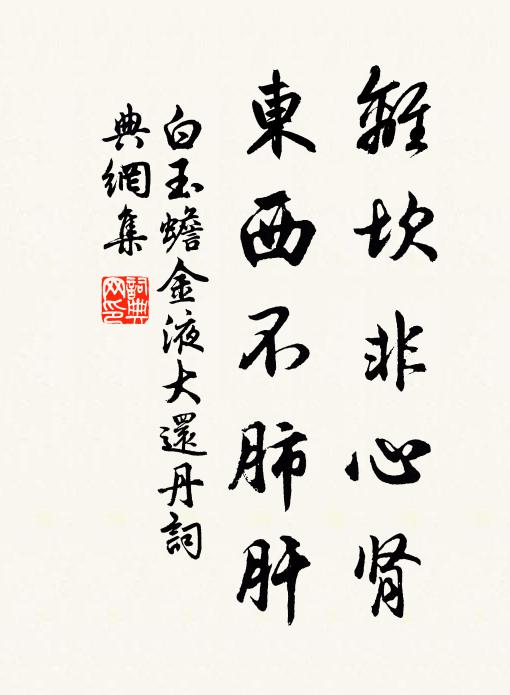 離坎非心肾
東西不肺肝
白玉蟾金液大還丹詞
典網集
詞典
网印